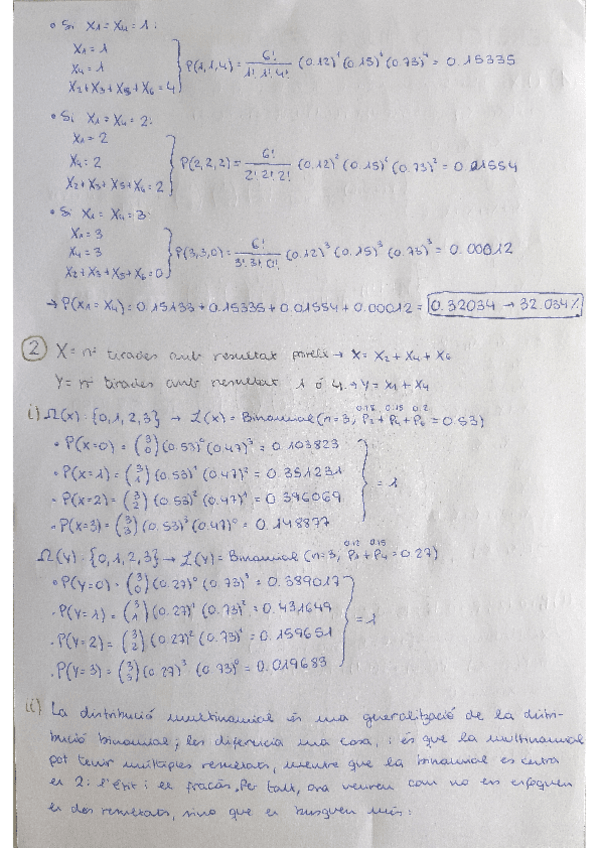 • Si X1 = X4 = 1:
X1 = 1
X4 = 1
X2 + X3 + X5 + X6 = 4
P(1,1,4) = 6! / 1! 1! 4! (0.12)¹ (0.15)¹ (0.73)⁴ = 0.15335
• Si X1 = X4 = 2:
X1 = 2
X4 = 2
X2 + X3 + X5 + X6 = 2
P(2,2,2) = 6! / 2! 2! 2! (0.12)² (0.15)² (0.73)² = 0.01554
• Si X1 = X4 = 3:
X1 = 3
X4 = 3
X2 + X3 + X5 + X6 = 0
P(3,3,0) = 6! / 3! 3! 0! (0.12)³ (0.15)³ (0.73)³ = 0.00012
→ P(X1 = X4) = 0.15133 + 0.15335 + 0.01554 + 0.00012 = 0.32034 → 32.034%
2 X = nº tirades amb resultat parell → X = X2 + X4 + X6
Y = nº tirades amb resultat 1 ó 4 → Y = X1 + X4
i) Ω(X): {0,1,2,3} → L(X) = Binomial (n=3, P2 + P4 + P6 = 0.53)
0.18 0.15 0.2
• P(X=0) = (3 0) (0.53)⁰ (0.47)³ = 0.103823
• P(X=1) = (3 1) (0.53)¹ (0.47)² = 0.351231
• P(X=2) = (3 2) (0.53)² (0.47)¹ = 0.396069
• P(X=3) = (3 3) (0.53)³ (0.47)⁰ = 0.148877
= 1
Ω(Y): {0,1,2,3} → L(Y) = Binomial (n=3, P1 + P4 = 0.27)
0.12 0.15
• P(Y=0) = (3 0) (0.27)⁰ (0.73)³ = 0.389017
• P(Y=1) = (3 1) (0.27)¹ (0.73)² = 0.431649
• P(Y=2) = (3 2) (0.27)² (0.73)¹ = 0.159651
• P(Y=3) = (3 3) (0.27)³ (0.73)⁰ = 0.019683
= 1
ii) La distribució multinomial és una generalització de la distri-
bució binomial; les diferencia una cosa, i és que la multinomial
pot tenir múltiples resultats, mentre que la binomial es centra
en 2: l'èxit i el fracàs. Per tant, ara veurem com no ens
en dos resultats, sino que es busquen més: